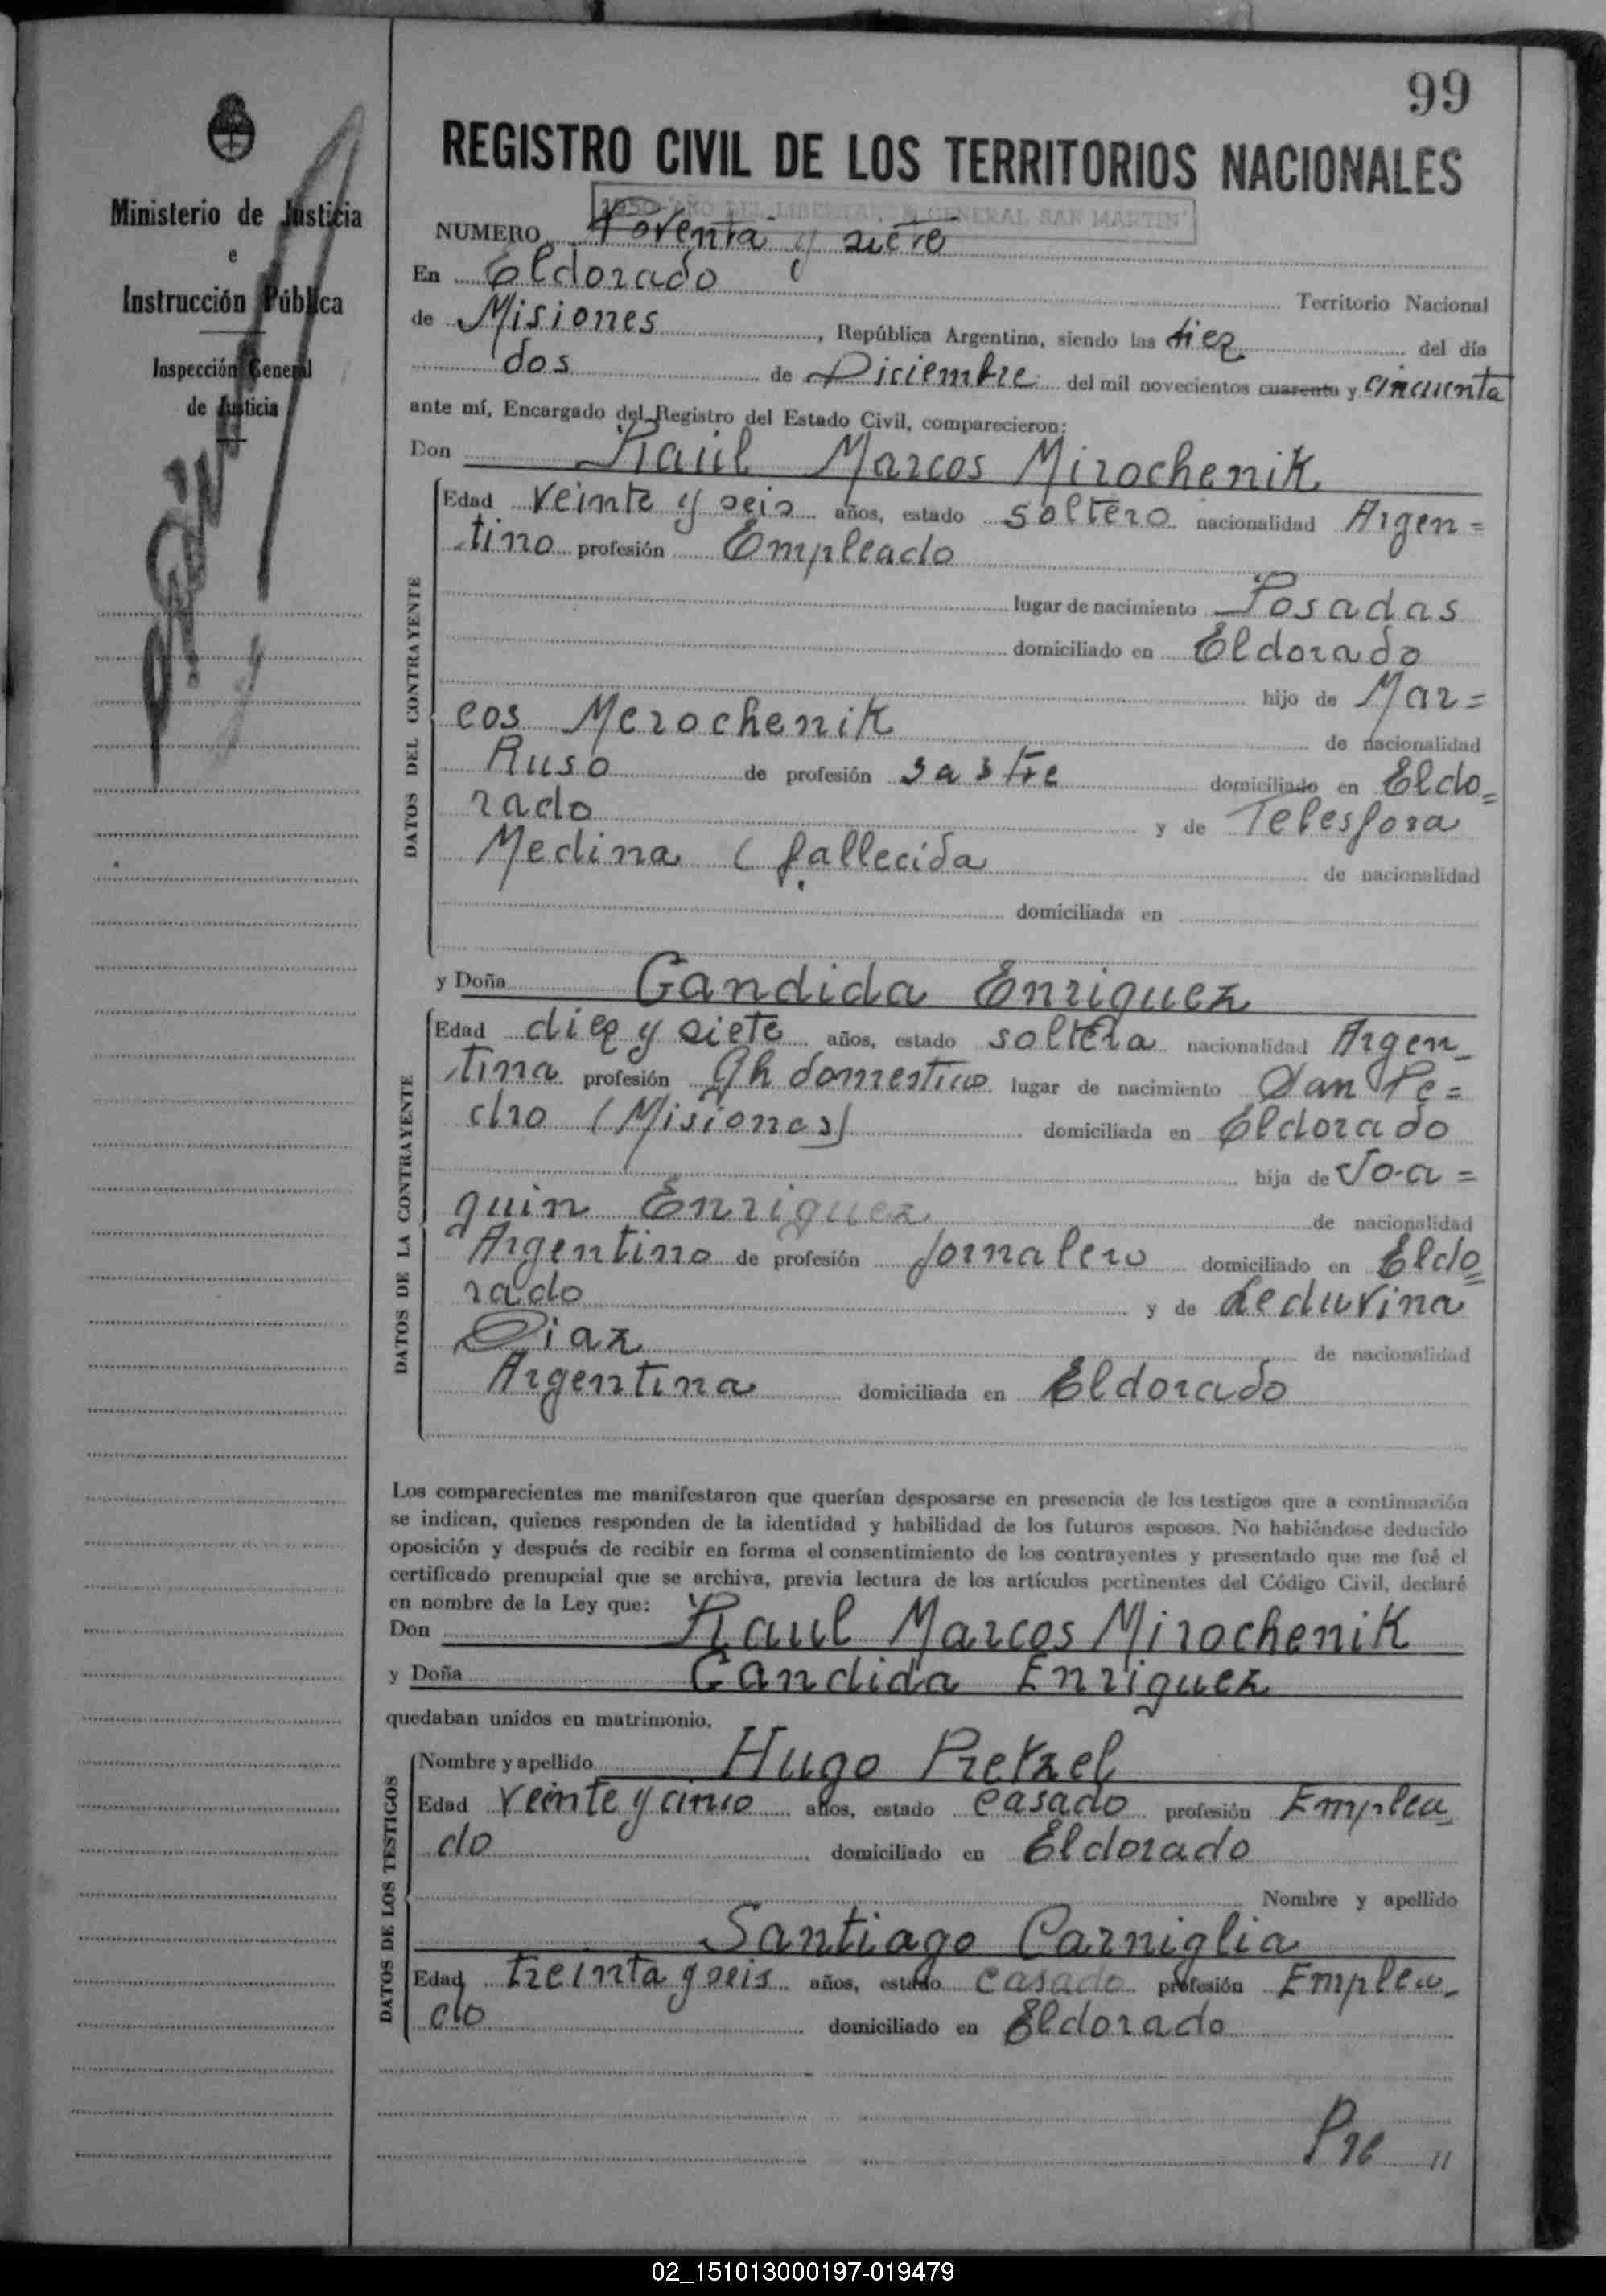 99
REGISTRO CIVIL DE LOS TERRITORIOS NACIONALES
Ministerio de Justicia
e
Instrucción Pública
Inspección General
de Justicia
1950 AÑO DEL LIBERTADOR GENERAL SAN MARTIN
NUMERO Noventa y siete
En Eldorado Territorio Nacional
de Misiones, República Argentina, siendo las diez del día
dos de Diciembre del mil novecientos cuarenta y cincuenta
ante mí, Encargado del Registro del Estado Civil, comparecieron:
Don Raúl Marcos Mirochenik
DATOS DEL CONTRAYENTE
Edad veinte y seis años, estado soltero nacionalidad Argen=
tino profesión Empleado
lugar de nacimiento Posadas
domiciliado en Eldorado
hijo de Mar=
cos Merochenik de nacionalidad
Ruso de profesión sastre domiciliado en Eldo=
rado y de Telesfora
Medina (fallecida de nacionalidad
domiciliada en
y Doña Candida Enriquez
DATOS DE LA CONTRAYENTE
Edad diez y siete años, estado soltera nacionalidad Argen-
tina profesión Qh domesticos lugar de nacimiento San Pe=
dro (Misiones) domiciliada en Eldorado
hija de Joa=
quin Enriquez de nacionalidad
Argentino de profesión Jornalero domiciliado en Eldo=
rado y de Ledurina
Diaz de nacionalidad
Argentina domiciliada en Eldorado
Los comparecientes me manifestaron que querían desposarse en presencia de los testigos que a continuación
se indican, quienes responden de la identidad y habilidad de los futuros esposos. No habiéndose deducido
oposición y después de recibir en forma el consentimiento de los contrayentes y presentado que me fué el
certificado prenupcial que se archiva, previa lectura de los artículos pertinentes del Código Civil, declaré
en nombre de la Ley que:
Don Raul Marcos Mirochenik
y Doña Candida Enriquez
quedaban unidos en matrimonio.
DATOS DE LOS TESTIGOS
Nombre y apellido Hugo Pretzel
Edad veinte y cinco años, estado casado profesión Emplea=
do domiciliado en Eldorado
Nombre y apellido
Santiago Carniglia
Edad treinta y seis años, estado casado profesión Emplea-
do domiciliado en Eldorado
Pre "
02_151013000197-019479